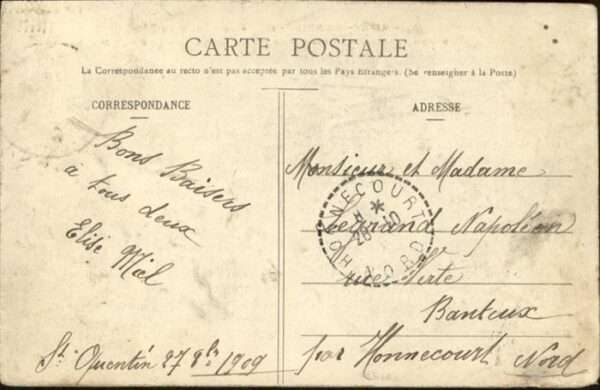 CARTE POSTALE
La Correspondance au recto n'est pas acceptée par tous les Pays Etrangers. (Se renseigner à la Poste)
CORRESPONDANCE
Bons Baisers
à tous deux
Elise Miel
St Quentin 27 1909
ADRESSE
Monsieur et Madame
Legrand Napoléon
rue Verte
Banteux
par Honnecourt Nord
HONNECOURT
NORD